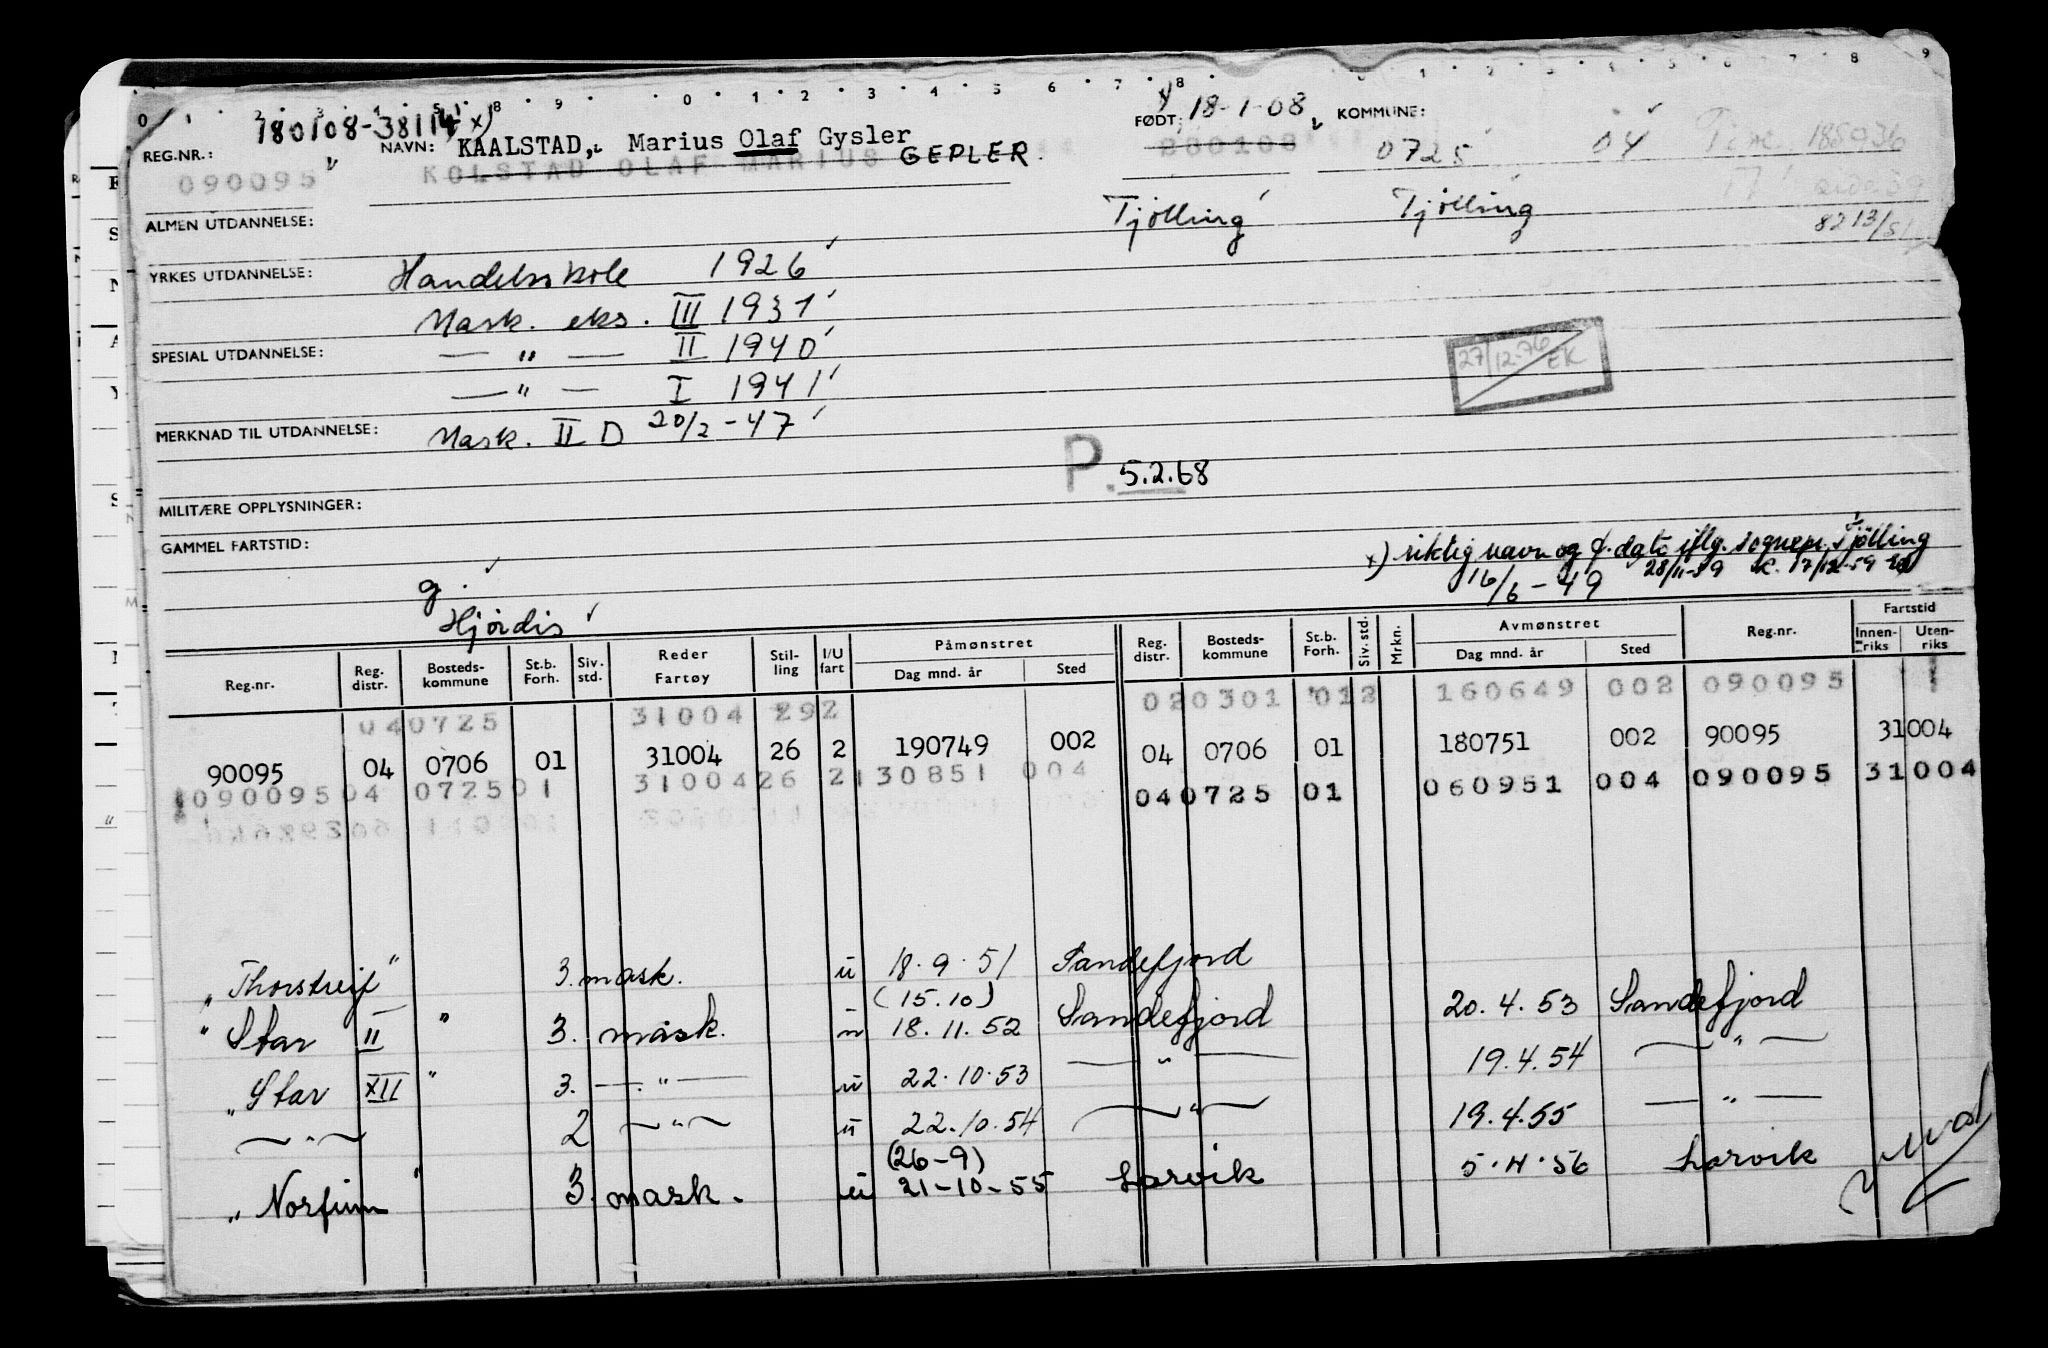 0 1 2 3 4 5 8 9 0 1 2 3 4 5 6 7 8 1 2 3 4 5 6 7 8 9
180108-38114 x) x) 18-1-08
REG.NR.: NAVN: KAALSTAD, Marius Olaf Gysler GEPLER. FØDT: KOMMUNE: 0725 04 185936
090095 KOLSTAD OLAF MARIUS 080108
ALMEN UTDANNELSE: Tjölling Tjölling 8213/51
YRKES UTDANNELSE: Handelsskole 1926
Mask. eks. III 1937
SPESIAL UTDANNELSE: — " — II 1940 27/12-76 EK
— " — I 1941
MERKNAD TIL UTDANNELSE: Mask. II D 20/2-47
P. 5.2.68
MILITÆRE OPPLYSNINGER:
GAMMEL FARTSTID: x) riktig navn og f. dato iflg. sognepr. i Tjölling
g. 16/6-49 28/11-59 K. 17/12-59
Hjördis
Reg.nr. Reg. distr. Bosteds-kommune St.b. Forh. Siv. std. Reder Fartøy Stil-ling I/U fart Påmønstret Dag mnd. år Sted Reg. distr. Bosteds-kommune St.b. Forh. Siv. std. Mrkn. Avmønstret Dag mnd. år Sted Reg.nr. Fartstid Innen-riks Uten-riks
040725 31004 292 020301 012 160649 002 090095 1
90095 04 0706 01 31004 26 2 190749 002 04 0706 01 180751 002 90095 31004
090095 04 0725 01 31004 26 2 130851 004 04 0725 01 060951 004 090095 31004
"Thorstreif" 3. mask. u 18.9.51 Sandefjord
(15.10)
"Star II" 3. mask. u 18.11.52 Sandefjord 20.4.53 Sandefjord
"Star XII" 3. — " — u 22.10.53 — " — 19.4.54 — " —
— " — 2 — " — u 22.10.54 — " — 19.4.55 — " —
(26-9)
"Norfinn" 3. mask. u 21-10-55 Larvik 5.4.56 Larvik